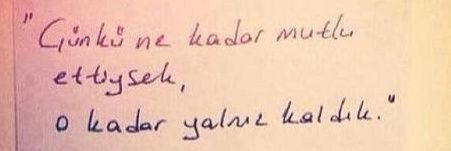 "Çünkü ne kadar mutlu
ettiysek,
o kadar yalnız kaldık."